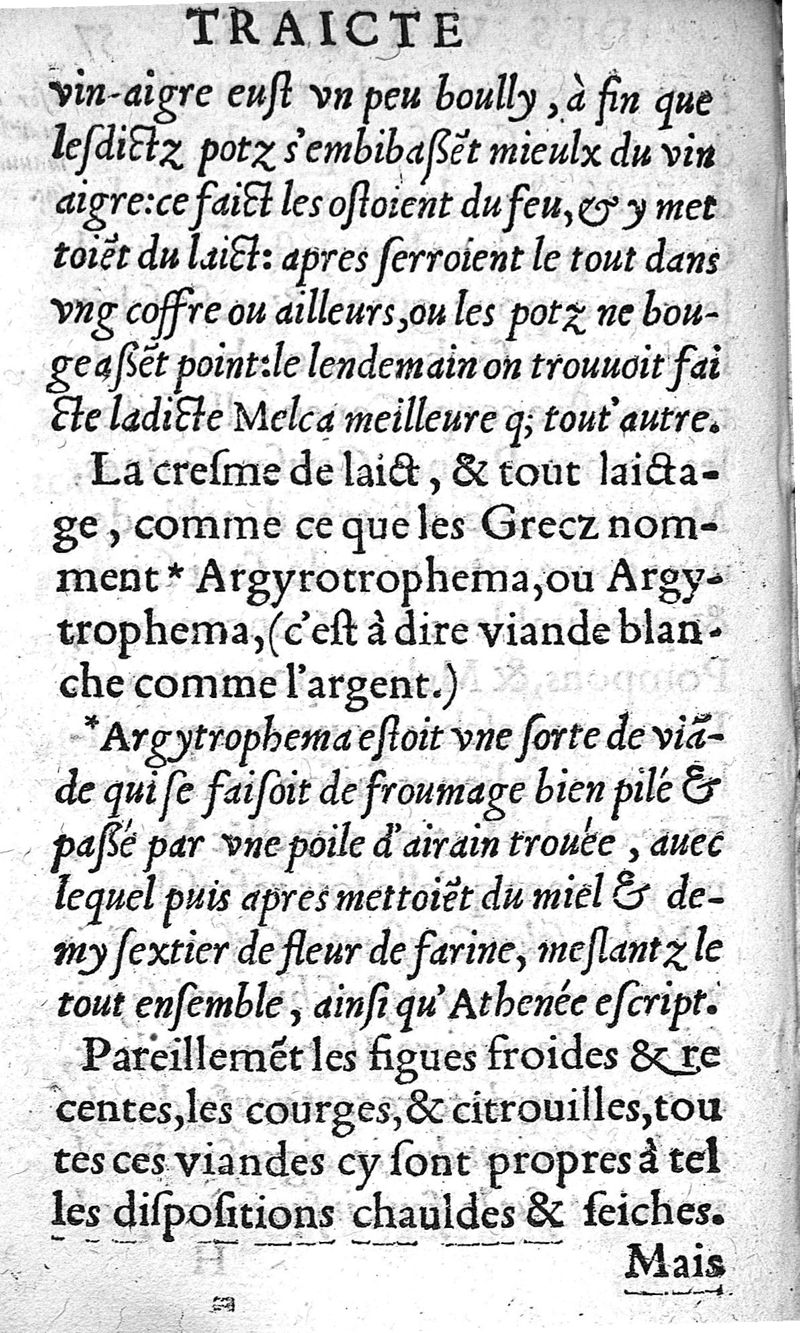 TRAICTE
vin-aigre euſt vn peu boully, à fin que
leſdictz potz s'embibaßẽt mieulx du vin
aigre: ce faict les oſtoient du feu, & y met
toiẽt du laict: apres ſerroient le tout dans
vng coffre ou ailleurs, ou les potz ne bou-
geaßẽt point: le lendemain on trouuoit fai
cte ladicte Melca meilleure q; tout'autre.
La creſme de laict, & tout laicta-
ge, comme ce que les Grecz nom-
ment * Argyrotrophema, ou Argy-
trophema, (c'eſt à dire viande blan-
che comme l'argent.)
*Argytrophema eſtoit vne ſorte de viã-
de qui ſe faiſoit de froumage bien pilé &
paßé par vne poile d'airain trouée, auec
lequel puis apres mettoiẽt du miel & de-
my ſextier de fleur de farine, meſlantz le
tout enſemble, ainſi qu'Athenée eſcript.
Pareillemẽt les figues froides & re
centes, les courges, & citrouilles, tou
tes ces viandes cy ſont propres à tel
les diſpoſitions chauldes & ſeiches.
Mais